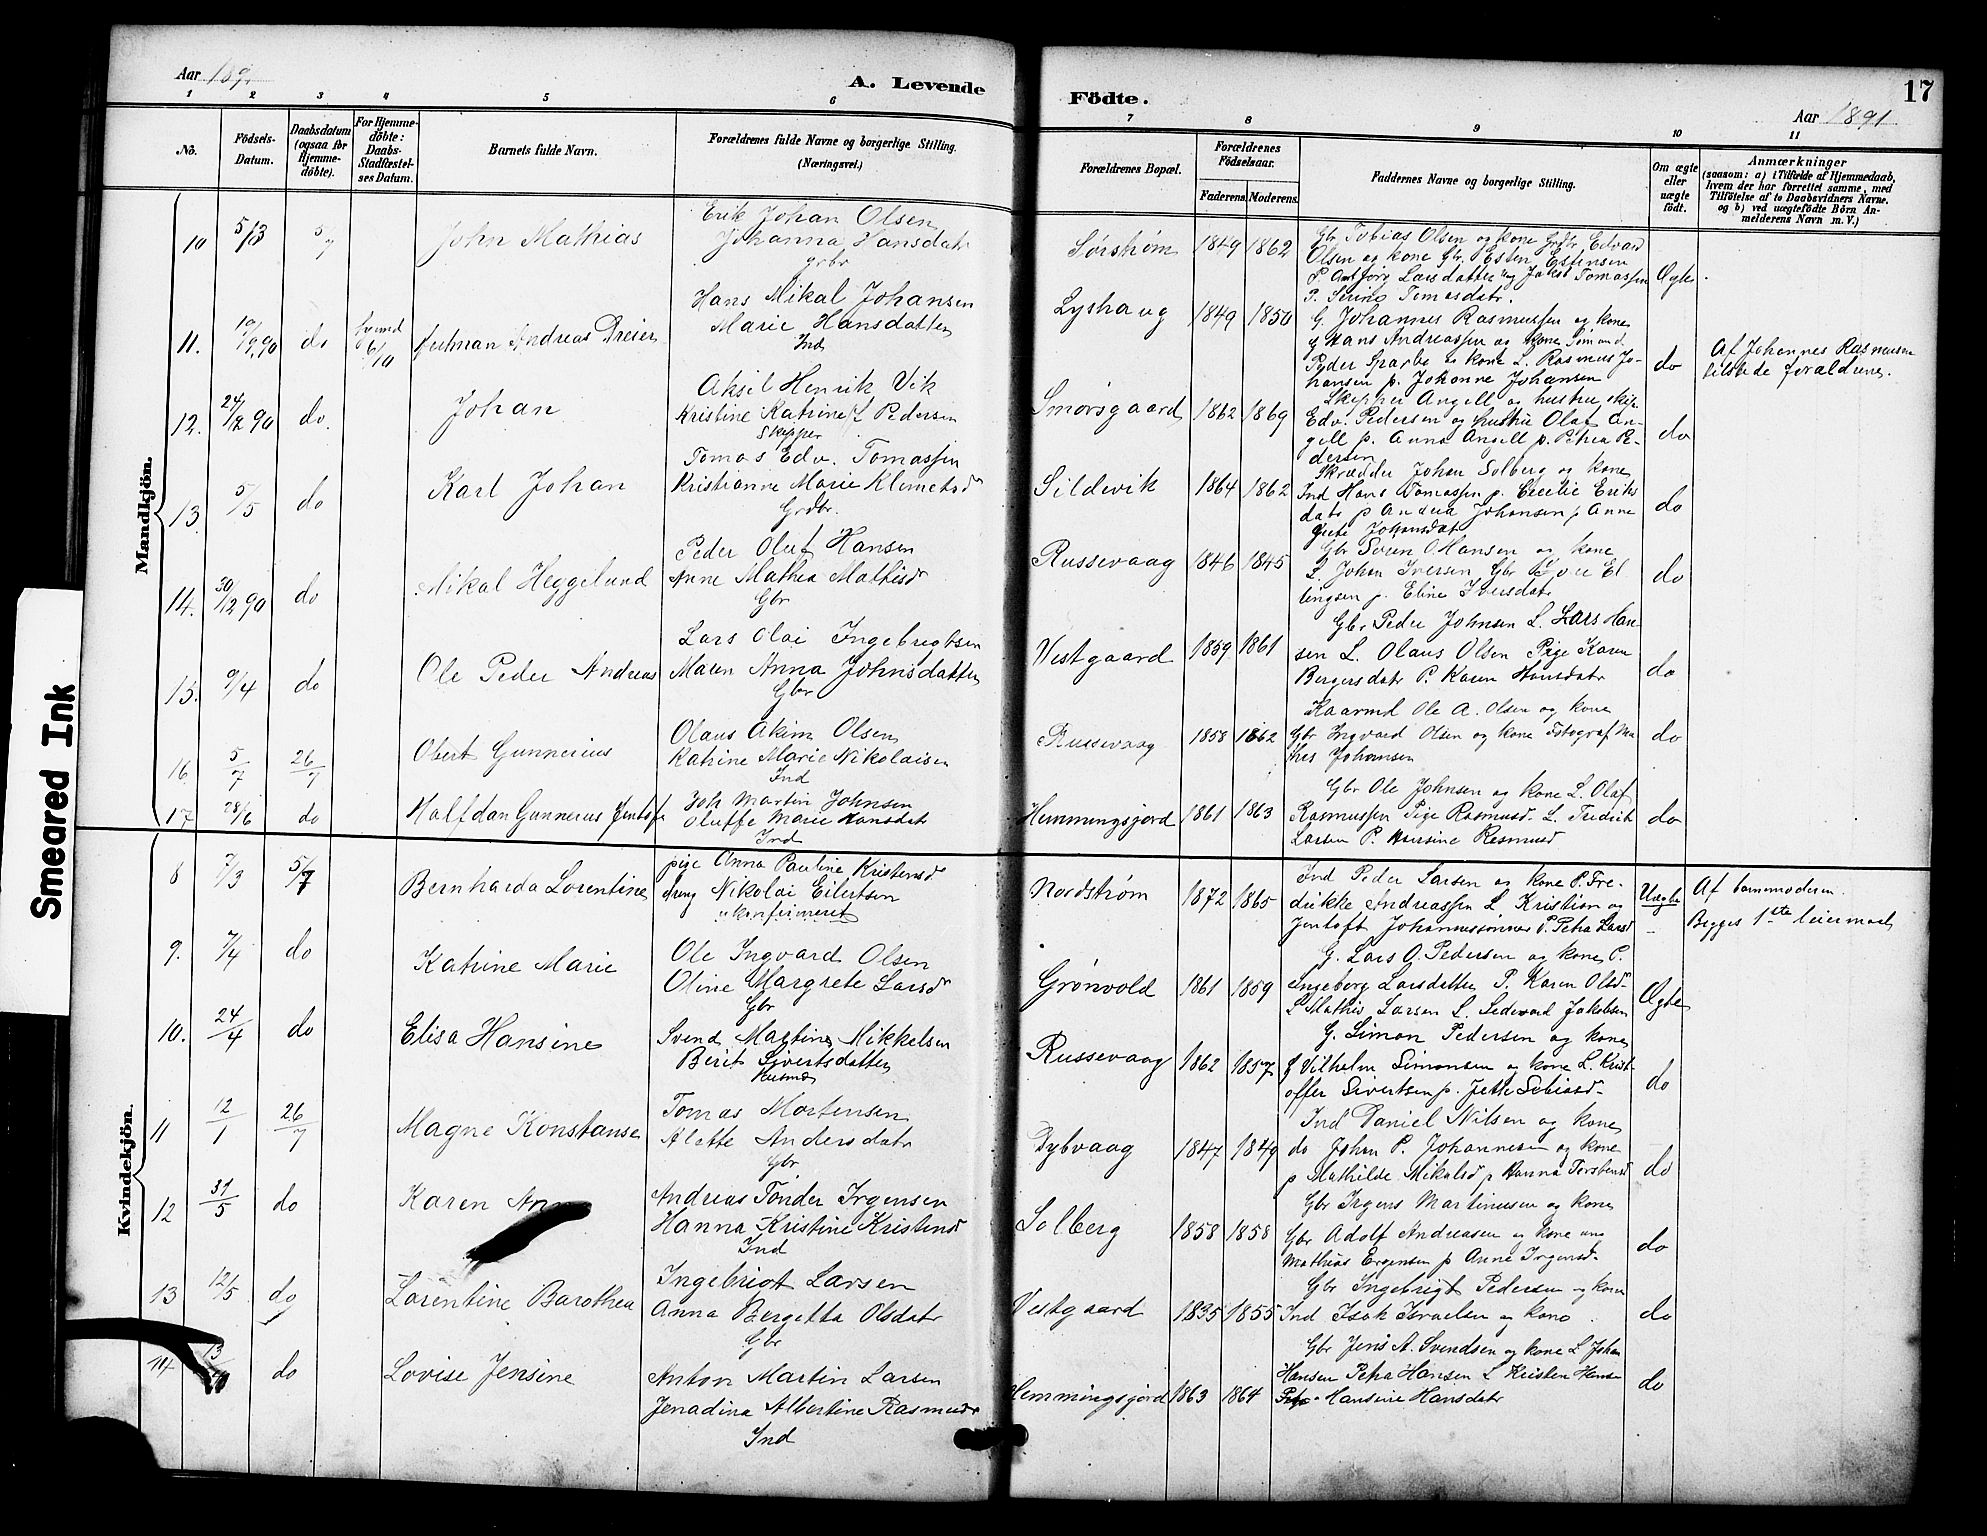 Aar 189.
A. Levende
Födte.
17
Aar 1891
1 2 3 4 5 6 7 8 9 10 11
No.
Födsels-
Datum.
Daabsdatum
(ogsaa for
Hjemme-
döbte).
For Hjemme-
döbte:
Daabs-
Stadfæstel-
ses Datum.
Barnets fulde Navn.
Forældrenes fulde Navne og borgerlige Stilling.
(Næringsvei.)
Forældrenes Bopæl.
Forældrenes
Födselsaar.
Faderens. Moderens.
Faddernes Navne og borgerlige Stilling.
Om ægte
eller
uægte
født.
Anmærkninger
(saasom: a) i Tilfælde af Hjemmedaab,
hvem der har forrettet samme, med
Tilföielse af to Daabsvidners Navne.
og b) ved uægtefödte Börn An-
melderens Navn m. V.)
Mandkjön.
10 5/3 5/7 John Mathias
Erik Johan Olsen
Johanna Hansdatr
grbr
Sørstrøm 1849 1862
Gbr Tobias Olsen og kone Gbr Edvard
Olsen og kone Gbr. Esten Estensen
P. Larsdatter og Jakob Tomassen
P. Serine Tomasdatr.
Ægte
11. 19/9 90 do 6/10 Andreas Dreier
Hans Mikal Johansen
Marie Hansdatter
Ind
Lyshaug 1849 1850
G. Johannes Rasmussen og kone
g Hans Andreassen og kone
Peder Sparbo og kone L. Rasmus Jo-
hansen p. Johanne Johansen
do
Af Johannes Rasmussen
tilstede forældrene.
12. 24/12 90 do. Johan
Aksel Henrik Vik
Kristine Katrine f. Pedersen
Skipper
Smørsgaard 1862 1869
Skipper Angell og hustru skip.
Edv. Pedersen og hustru Olaf An-
gell p. Anna Angell p. Petrea Pe-
dersen
do
13. 5/5 do Karl Johan
Tomas Edv. Tomassen
Kristianne Marie Klemetsdr
Grdbr.
Sildevik 1864 1862
Skrædder Johan Solberg og kone
Ind Hans Tomassen p. Cecilie Eriks
datr p Andrea Johansen p Anne
Johansdatr
do
14. 30/12 90 do Mikal Heggelund
Peder Oluf Hansen
Anne Mathea Mathisdr
Gbr
Russevaag 1846 1845
Gbr Søren O. Hansen og kone
L. Johan Iversen Gbr El
lingsen p. Eline Iversdatr
do
15. 9/4 do Ole Peder Andreas
Lars Olai Ingebrigtsen
Maren Anna Johnsdatter
Gbr
Vestgaard 1859 1861
Gbr Peder Johnsen L. Lars Han-
sen L. Olaus Olsen Pige Karen
Bergersdatr P. Karen Hansdatr
do
16. 5/7 26/7 Obert Gunnerius
Olaus Akim Olsen
Katrine Marie Nikolaisen
Ind
Russevaag 1858 1862
Kaarmd Ole A. Olsen og kone
Gbr Ingvard Olsen og kone Fotograf Ma
this Johansen
do
17 28/6 do Halfdan Gunnerius Jentoft
Joh Martin Johnsen
Oluffe Marie Hansdatr
Ind
Hemmingsjord 1861 1863
Gbr Ole Johnsen og kone L. Olaf
Rasmussen Pige Rasmusd. L. Fredrik
Larsen P. Hansine Rasmusd
do
Kvindekjön.
8 7/3 5/7 Bernharda Lorentine
pige Anna Pauline Kristensd
Ung Nikolai Eilertsen
ukonfirmeret
Nordstrøm 1872 1865
Ind Peder Larsen og kone P. Fre-
drikke Andreassen L Kristian og
Jentoft Johannessønner P. Petra Larsd
Uægte
Af barnemoderen.
Begges 1ste leiermaal
9. 7/4 do Katrine Marie
Ole Ingvard Olsen
Oline Margrete Larsdr
Gbr
Grønvold 1861 1859
G. Lars O. Pedersen og kone P.
Ingeborg Larsdatter P. Karen Olsd.
L Mathis Larsen L. Sedevard Jakobsen
Ægte
10. 24/4 do Elisa Hansine
Svend Martines Mikkelsen
Berit Sivertsdatter
Husmd
Russevaag 1862 1857
G. Simon Pedersen og kone
g Vilhelm Simonsen og kone L. Krist-
offer Sivertsen p. Jette
do
11 12/1 26/7 Magne Konstanse
Tomas Mortensen
Alette Andersdatr
Gbr
Dybvaag 1847 1849
Ind Daniel Nilsen og kone
do Johan P. Johannesen og kone
p Mathilde Mikalsd p Hanna Torstensd
do
12 31/5 do Karen
Andreas Tønder Irgensen
Hanna Kristine Kristensd
Ind
Solberg 1858 1858
Gbr Irgens Martinussen og kone
Gbr Adolf Andreasen og kone ung
Mathias Ergensen p Anne Irgensd.
do
13 12/5 do Lorentine Barothea
Ingebrigt Larsen
Anna Bergetta Olsdatr
Gbr
Vestgaard 1835 1855
Gbr Ingebrigt Pedersen og kone
Ind Isak Israelsen og kone
do
14 do Lovise Jensine
Anton Martin Larsen
Jenadina Albertine Rasmusdr
Ind
Hemmingsjord 1863 1864
Gbr Jens A. Svendsen og kone L Johan
Hansen Petra Hansen L Kristen Hansen
Hansine Hansdatr
do
Smeared Ink